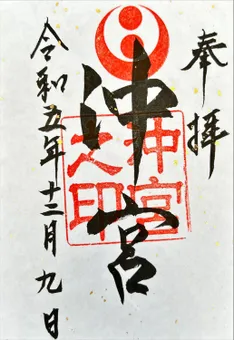 奉拝
沖宮
沖宮之印
令和五年十二月九日